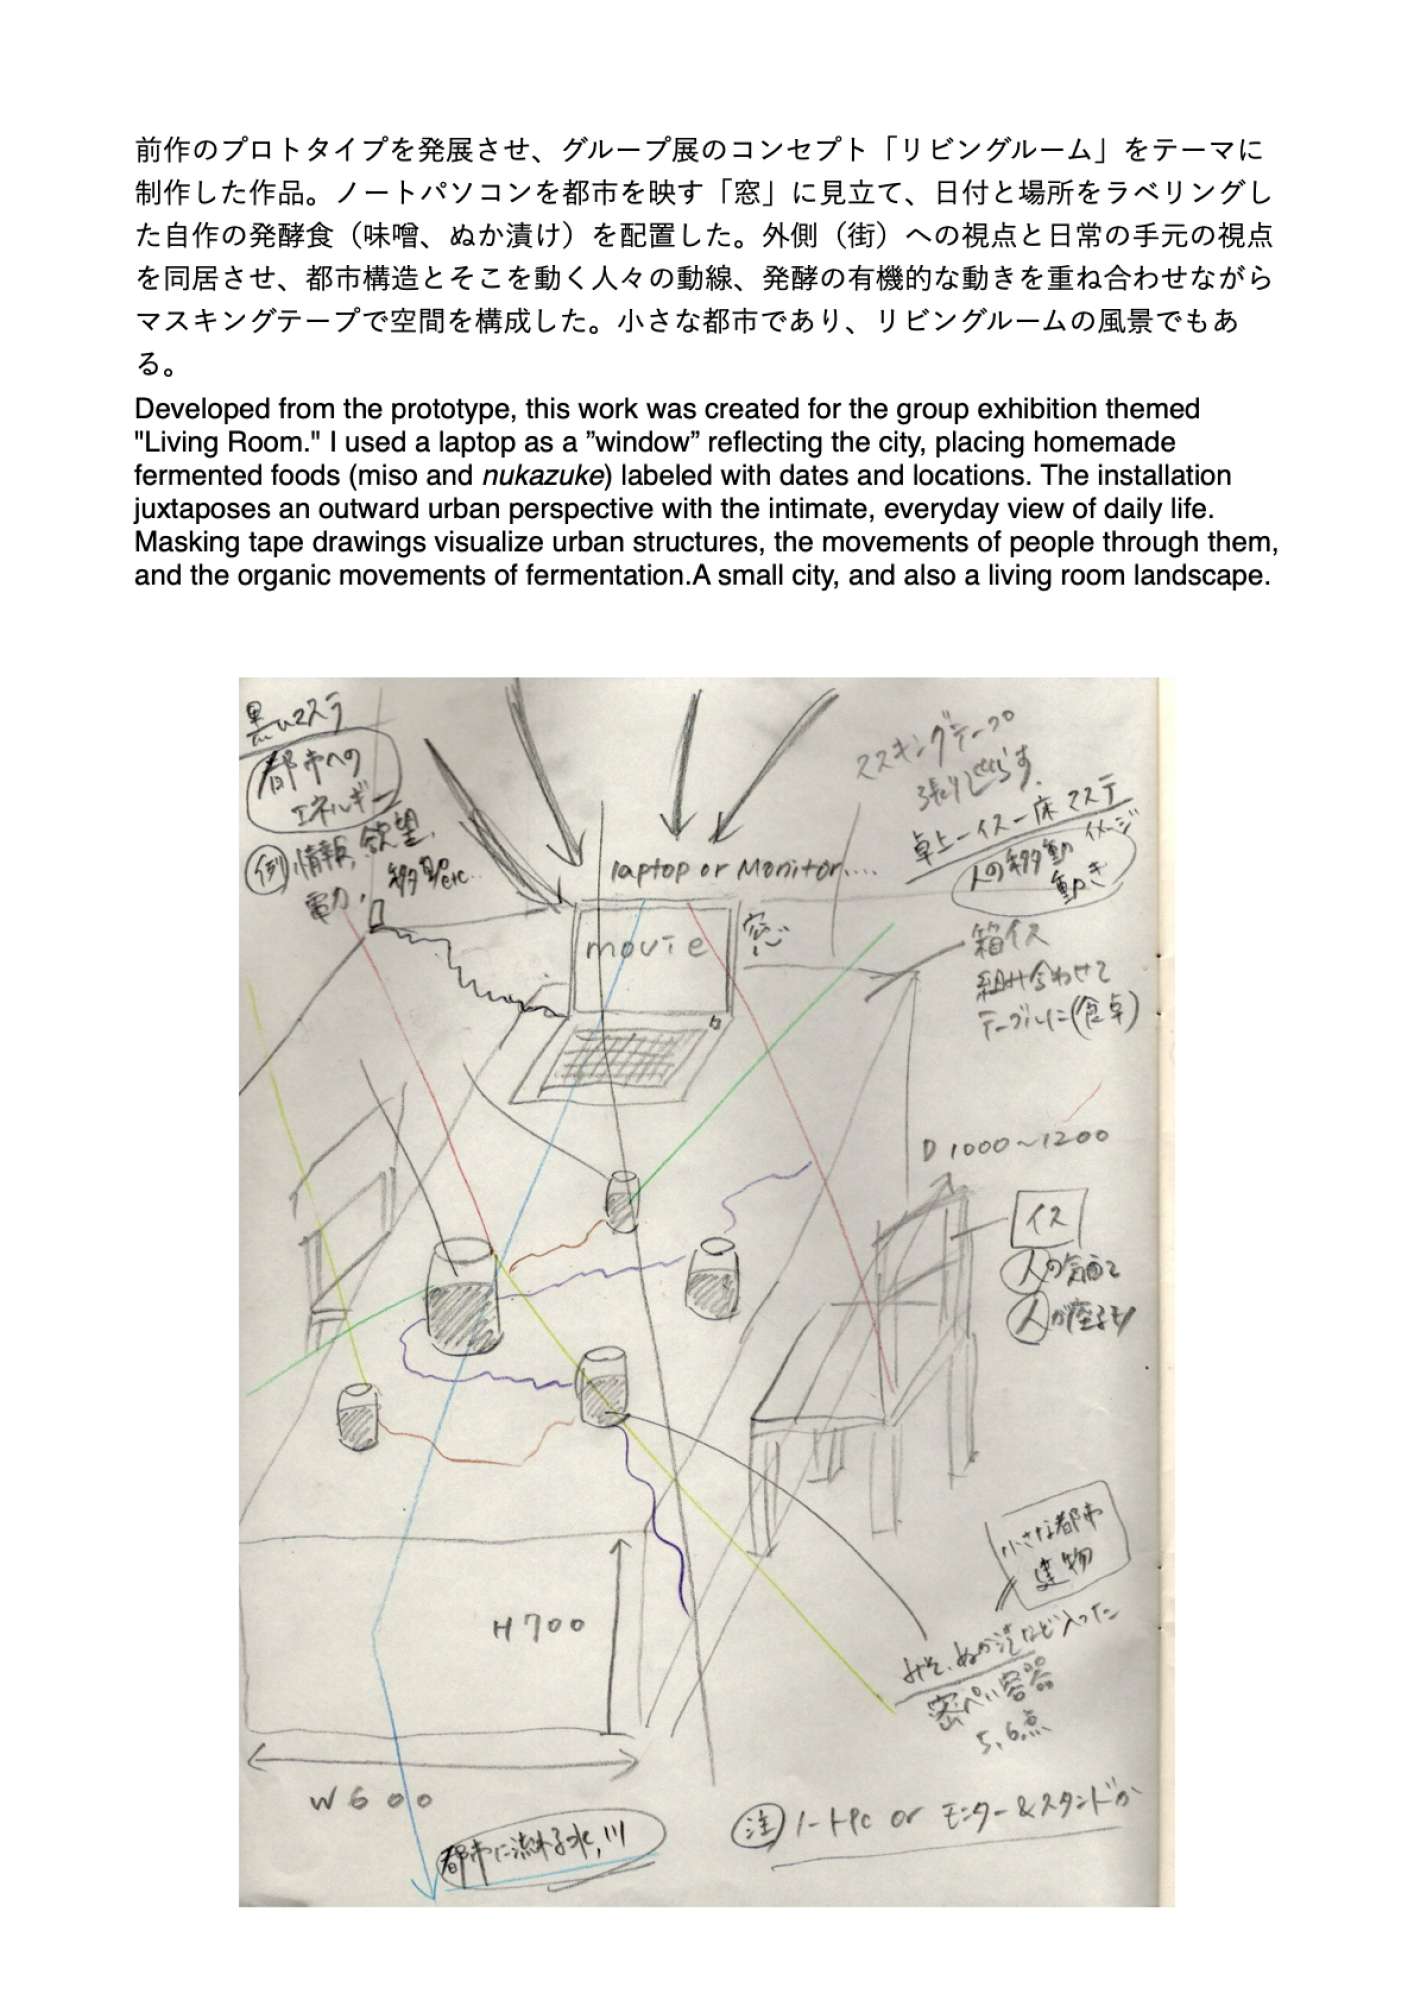 前作のプロトタイプを発展させ、グループ展のコンセプト「リビングルーム」をテーマに
制作した作品。ノートパソコンを都市を映す「窓」に見立て、日付と場所をラベリングし
た自作の発酵食（味噌、ぬか漬け）を配置した。外側（街）への視点と日常の手元の視点
を同居させ、都市構造とそこを動く人々の動線、発酵の有機的な動きを重ね合わせながら
マスキングテープで空間を構成した。小さな都市であり、リビングルームの風景でもあ
る。
Developed from the prototype, this work was created for the group exhibition themed
"Living Room." I used a laptop as a ”window” reflecting the city, placing homemade
fermented foods (miso and nukazuke) labeled with dates and locations. The installation
juxtaposes an outward urban perspective with the intimate, everyday view of daily life.
Masking tape drawings visualize urban structures, the movements of people through them,
and the organic movements of fermentation.A small city, and also a living room landscape.
都市への
エネルギー
例 情報、欲望、
電力、移動etc..
マスキングテープ
張りめぐらす.
卓上ーイスー床 マステ
人の移動 イメージ
動き
laptop or Monitor....
movie
窓
箱イス
組み合わせて
テーブルに(食卓)
D 1000～1200
イス
人の気配と
人が座るも
小さな都市
建物
みそ、ぬか漬けなど入った
密ぺい容器
5、6点
H700
W600
都市に流れる水、川
注 ノートPC or モニター&スタンドか